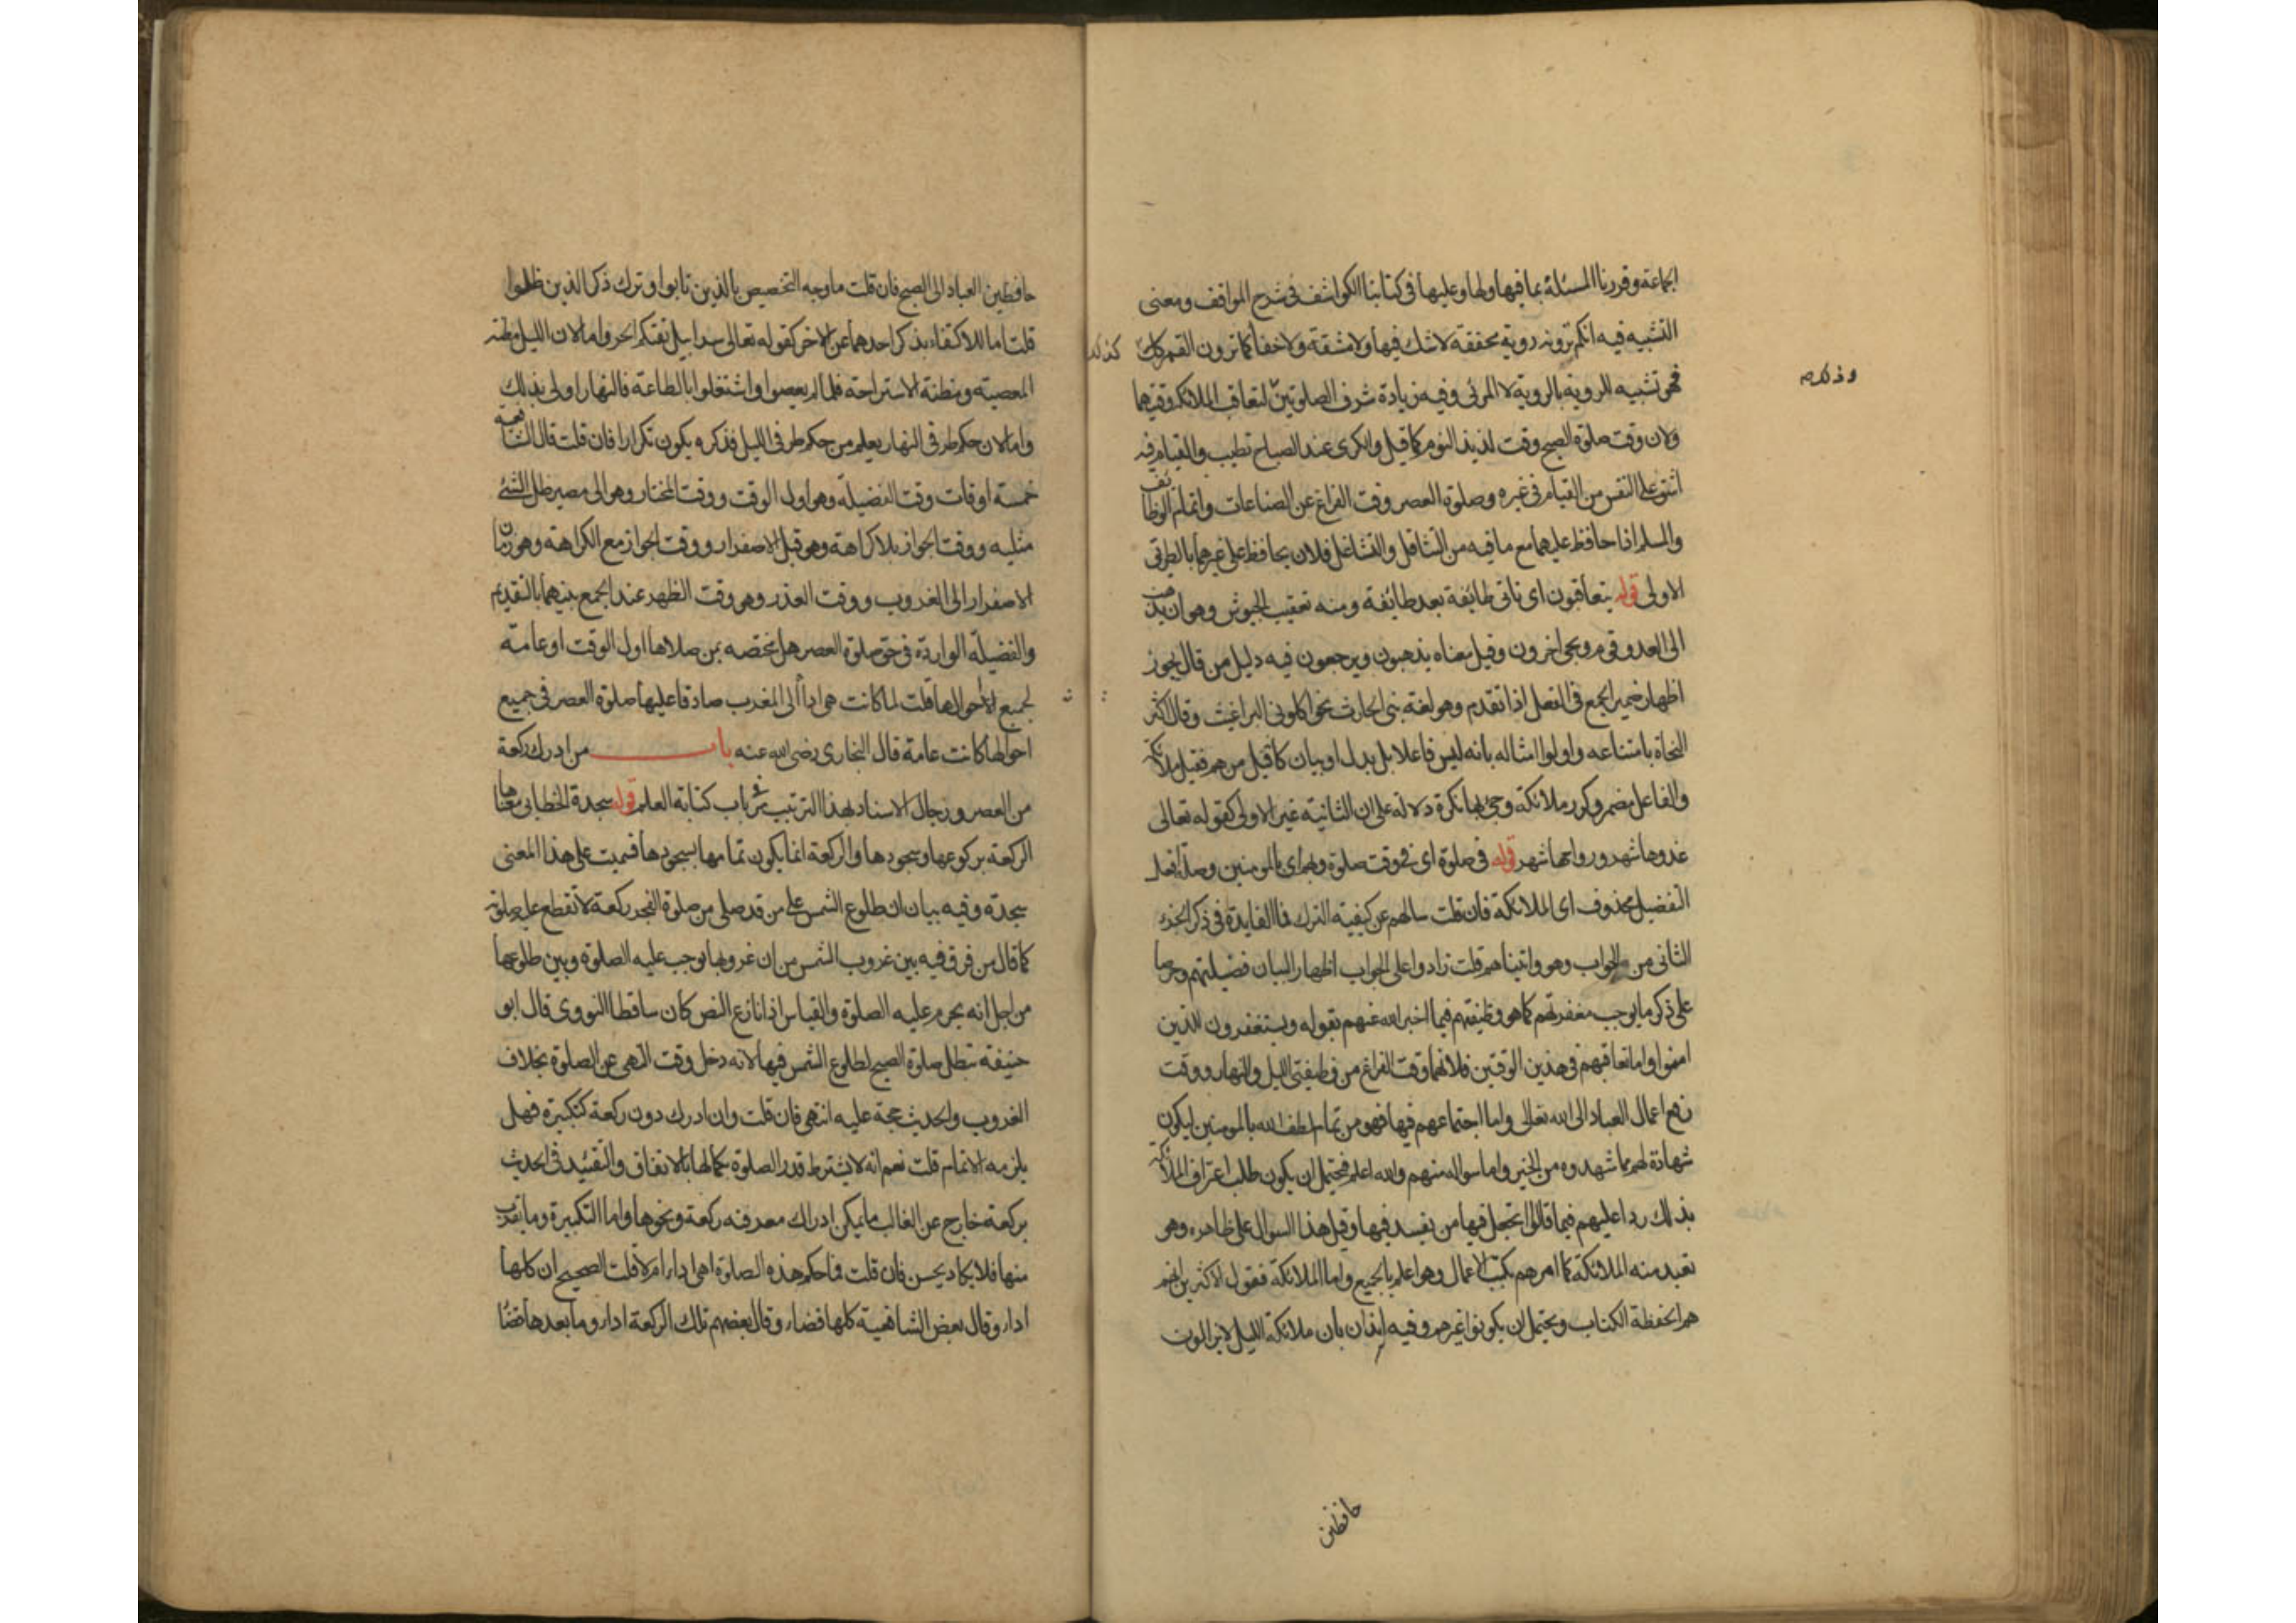 الجماعة وقررنا المسئلة بما فيها ولها وعليها في كتابنا الكواشف في شرح المواقف ومعنى
التشبيه فيه انكم ترونه روية محققة لا شك فيها ولا مشقة ولا خفا كما ترون القمر كذلك
فهو تشبيه للروية بالروية لا المرئى وفيه زيادة شرف الصلوتين لتعاقب الملائكة وقتيهما
ولان وقت صلوة الصبح وقت لذيذ النوم كما قيل والكرى عند الصباح تطيب والقيام فيه
اشق على النفس من القيام في غيره وصلوة العصر وقت الفراغ عن الصناعات واتمام الوظائف
والمسلم اذا حافظ عليهما مع ما فيه من التثاقل والتشاغل فلان يحافظ على غيرهما بالطريق
الاولى قوله يتعاقبون اى تاتى طائفة بعد طائفة ومنه تعقيب الجيوش وهو ان يذهب
الى العدو قوم ويجى اخرون وقيل معناه يذهبون ويرجعون فيه دليل من قال يجوز
اظهار ضمير الجمع في الفعل اذا تقدم وهو لغة بنى الحارث نحو اكلونى البراغيث وقال اكثر
النحاة بامتناعه واولوا امثاله بانه ليس فاعلا بل بدل او بيان كانه قيل من هم فقيل ملائكة
والفاعل مضمر وكرر ملائكة وجئ بها نكرة دلالة على ان الثانية غير الاولى كقوله تعالى
غدوها شهر ورواحها شهر قوله في صلوة اى في وقت صلوة وبهم اى بالمومنين وصلة افعل
التفضيل محذوف اى الملائكة فان قلت سالهم عن كيفية الترك فما الفايدة في ذكر الجزء
الثانى من الجواب وهو واتيناهم قلت زادوا على الجواب اظهارا لبيان فضيلتهم وحرصا
على ذكر ما يوجب مغفرتهم كما هو وظيفتهم فيما اخبر الله عنهم بقوله ويستغفرون للذين
امنوا واما تعاقبهم في هذين الوقتين فلانهما وقت الفراغ من وظيفتى الليل والنهار ووقت
رفع اعمال العباد الى الله تعالى واما اجتماعهم فيها فهو من تمام لطف الله بالمومنين ليكون
شهادة لهم بما شهدوه من الخير واما سواله منهم والله اعلم فيحتمل ان يكون طلب اعتراف الملائكة
بذلك ردا عليهم فيما قالوا اتجعل فيها من يفسد فيها وقيل هذا السوال على ظاهره وهو
تعبد منه الملائكة كما امرهم بكتب الاعمال وهو اعلم بالجميع واما الملائكة فقول الاكثرين انهم
هم الحفظة الكتاب ويحتمل ان يكونوا غيرهم وفيه ايذان بان ملائكة الليل لا يزالون
حافظين
حافظين العباد الى الصبح فان قلت ما وجه التخصيص بالذين باتوا وترك ذكر الذين ظلوا
قلت اما للاكتفاء بذكر احدهما عن الاخر كقوله تعالى سرابيل تقيكم الحر واما لان الليل مظنة
المعصية ومظنة الاستراحة فلما لم يعصوا واشتغلوا بالطاعة فالنهار اولى بذلك
واما لان حكم طرفى النهار يعلم من حكم طرفى الليل فذكره يكون تكرارا فان قلت قال الشافعية
خمسة اوقات وقت الفضيلة وهو اول الوقت ووقت المختار وهو الى مصير ظل الشئ
مثليه ووقت الجواز بلا كراهة وهو قبل الاصفرار ووقت الجواز مع الكراهة وهو زمان
الاصفرار الى الغروب ووقت العذر وهو وقت الظهر عند الجمع بينهما بالتقديم
والفضيلة الواردة في حق صلوة العصر هل مختصه بمن صلاها اول الوقت او عامة
لجميع احوالها قلت لما كانت هى اداً الى المغرب صادقا عليها صلوة العصر في جميع
احوالها كانت عامة قال البخارى رضى الله عنه باب من ادرك ركعة
من العصر ورجال الاسناد بهذا الترتيب مر في باب كتابة العلم قوله سجدة الخطابى معناها
الركعة بركوعها وسجودها والركعة انما يكون تمامها بسجودها فسميت على هذا المعنى
سجدة وفيه بيان ان طلوع الشمس على من قد صلى من صلوة الفجر ركعة لا تقطع عليه صلوته
كما قال من فرق فيه بين غروب الشمس من ان غروبها يوجب عليه الصلوة وبين طلوعها
من اجل انه يحرم عليه الصلوة والقياس اذا نازع النص كان ساقطا النووى قال ابو
حنيفة تبطل صلوة الصبح لطلوع الشمس فيها لانه دخل وقت النهى عن الصلوة بخلاف
الغروب والحديث حجة عليه انتهى فان قلت وان ادرك دون ركعة كتكبيرة فهل
يلزمه الاتمام قلت نعم انه لا يشترط قدر الصلوة بكمالها بالاتفاق والتقييد في الحديث
بركعة خارج عن الغالب ما يمكن ادراك معرفته ركعة ونحوها واما التكبيرة وما يقرب
منها فلا يكاد يحسن فان قلت فما حكم هذه الصلوة اهى اداء ام لا قلت الصحيح ان كلها
اداء وقال بعض الشافعية كلها قضاء وقال بعضهم تلك الركعة اداء وما بعدها قضا